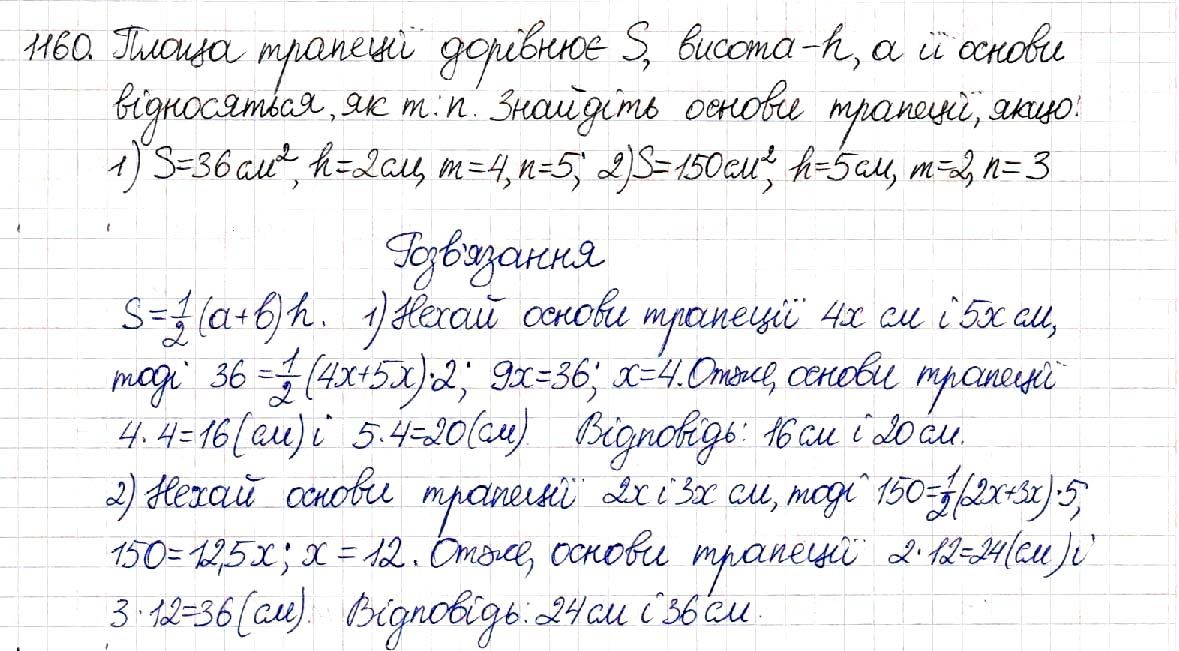 1160. Площа трапеції дорівнює S, висота – h, а її основи
відносяться, як m : n. Знайдіть основи трапеції, якщо:
1) S=36см², h=2см, m=4, n=5; 2) S=150см², h=5см, m=2, n=3
Розв'язання
S=1/2(a+b)h. 1) Нехай основи трапеції 4x см і 5x см,
тоді 36=1/2(4x+5x)·2; 9x=36; x=4. Отже, основи трапеції
4·4=16(см) і 5·4=20(см) Відповідь: 16см і 20см.
2) Нехай основи трапеції 2x і 3x см, тоді 150=1/2(2x+3x)·5;
150=12,5x; x=12. Отже, основи трапеції 2·12=24(см) і
3·12=36(см). Відповідь: 24см і 36см.